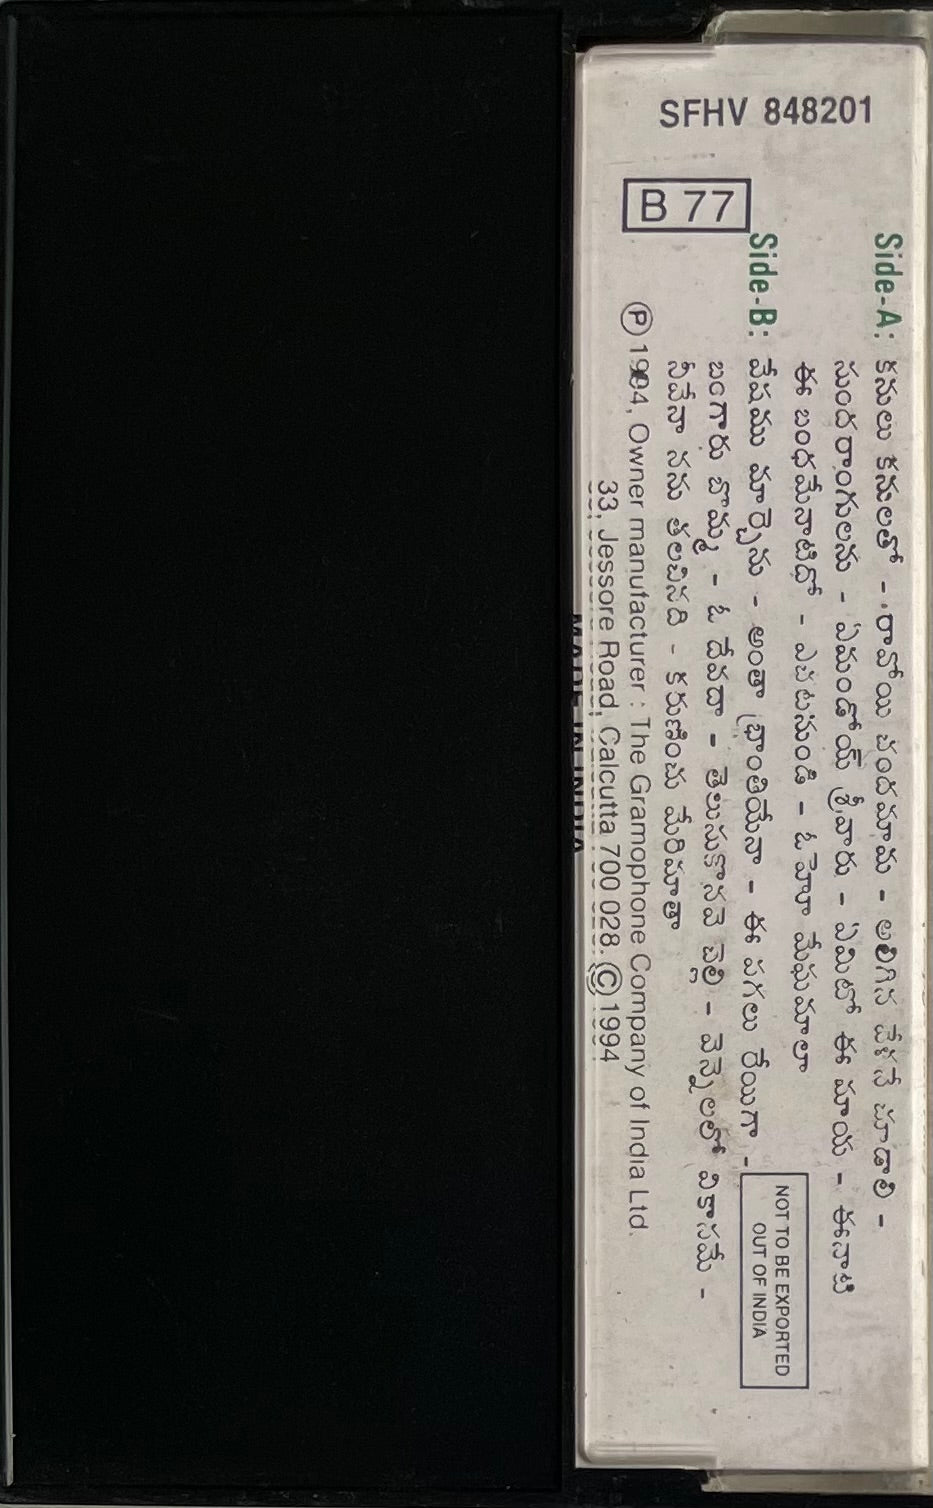 SFHV 848201
B 77
Side-A: కనులు కనులతో - రావోయి చందమామ - అలిగిన వేళనే చూడాలి -
సుందరాంగులను - ఏమండోయ్ శ్రీవారు - ఏమిటో ఈ మాయ - ఈనాటి
ఈ బంధమేనాటిదో - ఎచటనుండి - ఓహో మేఘమాలా
Side-B: వేషము మార్చెను - అంతా భ్రాంతియేనా - ఈ పగలు రేయిగా -
బంగారు బొమ్మ - ఓ దేవదా - తెలుసుకొనవె చెల్లి - వెన్నెలలో వికాసమే -
నీవేనా నను తలచినది - కరుణించు మేరిమాతా
Ⓟ 1994, Owner manufacturer : The Gramophone Company of India Ltd.
33, Jessore Road, Calcutta 700 028. © 1994
NOT TO BE EXPORTED
OUT OF INDIA
MADE IN INDIA